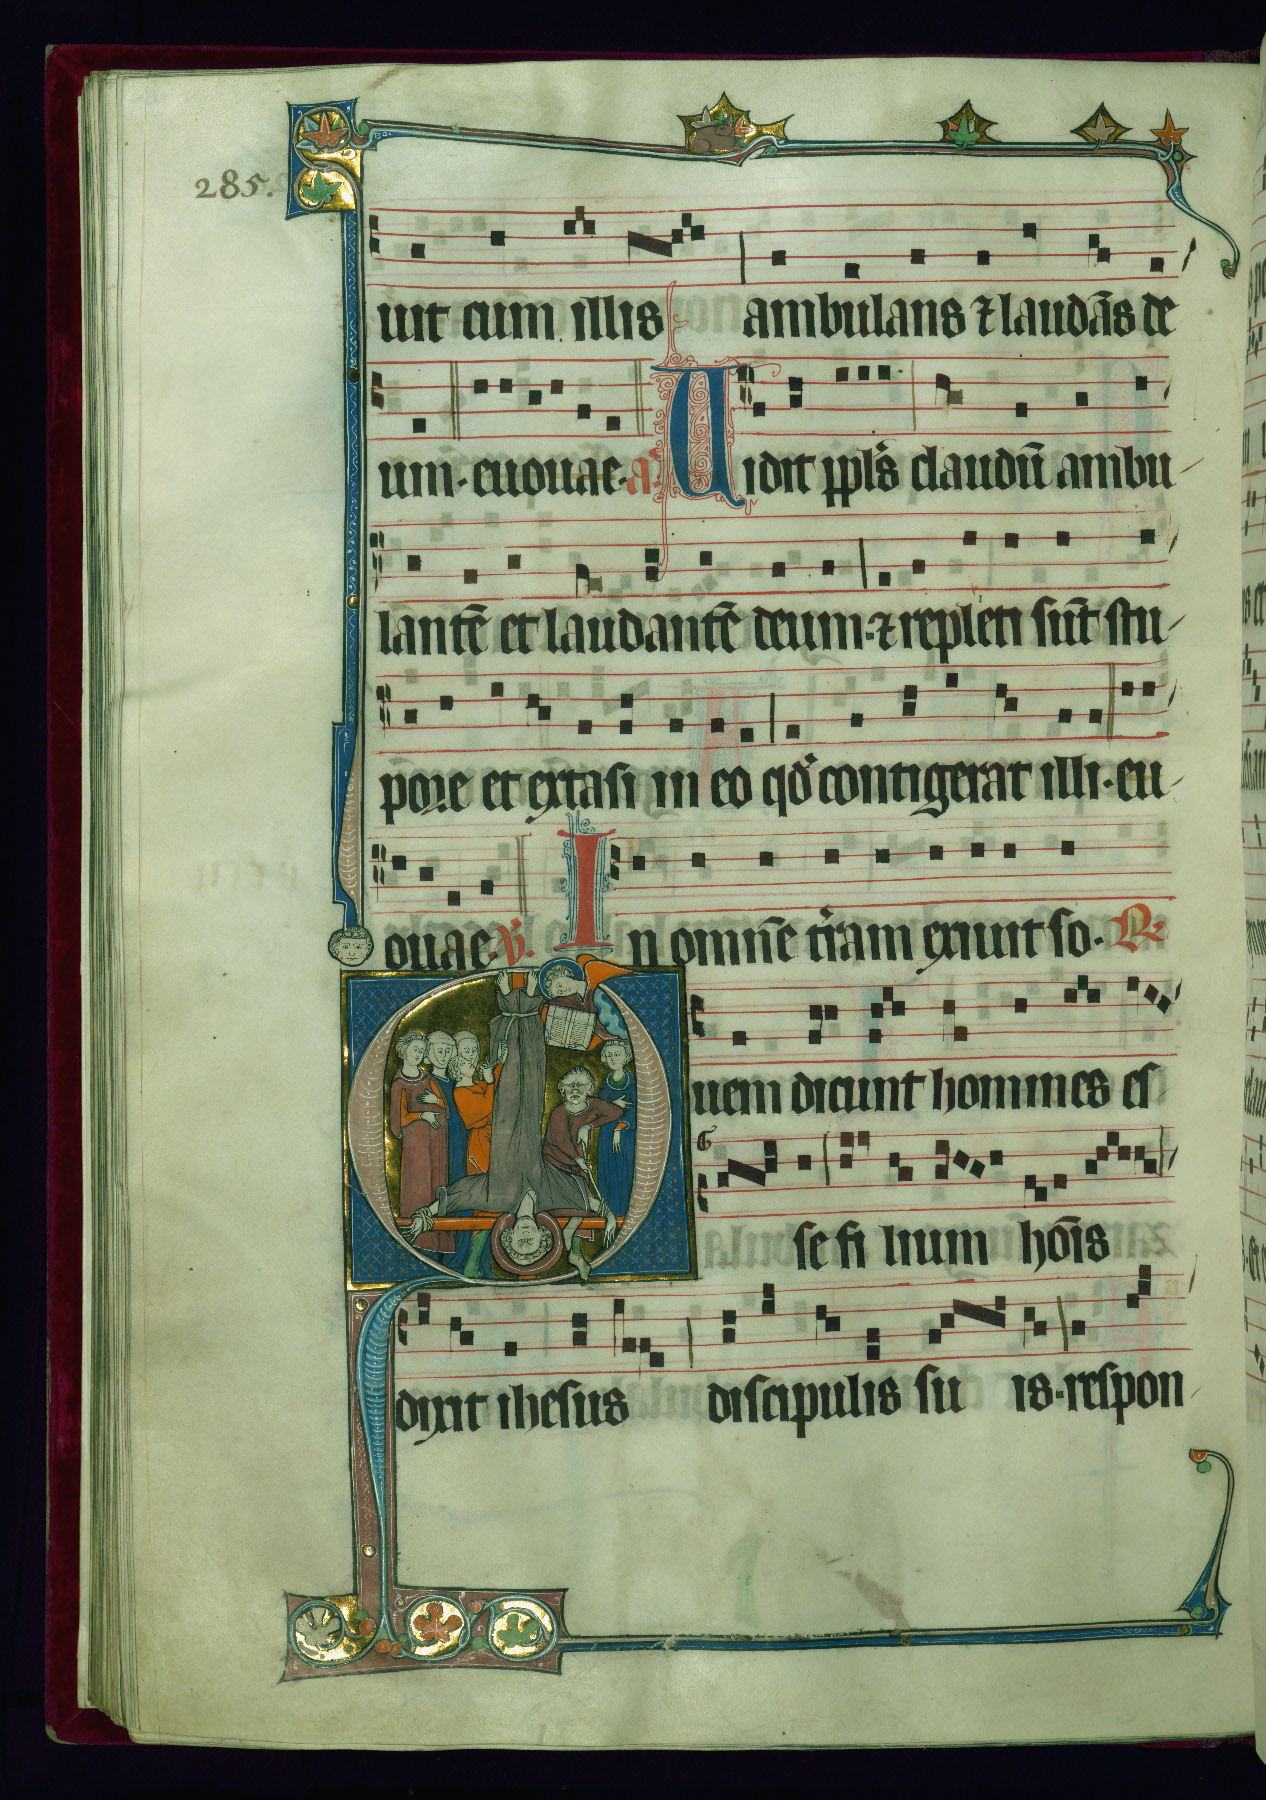 285.
uit cum illis ambulans ⁊ laudās de
um. euouae. a. Uidit ppl's claudū ambu
lantē et laudantē deum. ⁊ repleti sūt stu
pore et extasi in eo qđ contigerat illi. eu
ouae. V. In omnē t'ram exiuit so. R
Quem dicunt homines es
se fi lium hoīs
dixit ihesus discipulis su is. respon